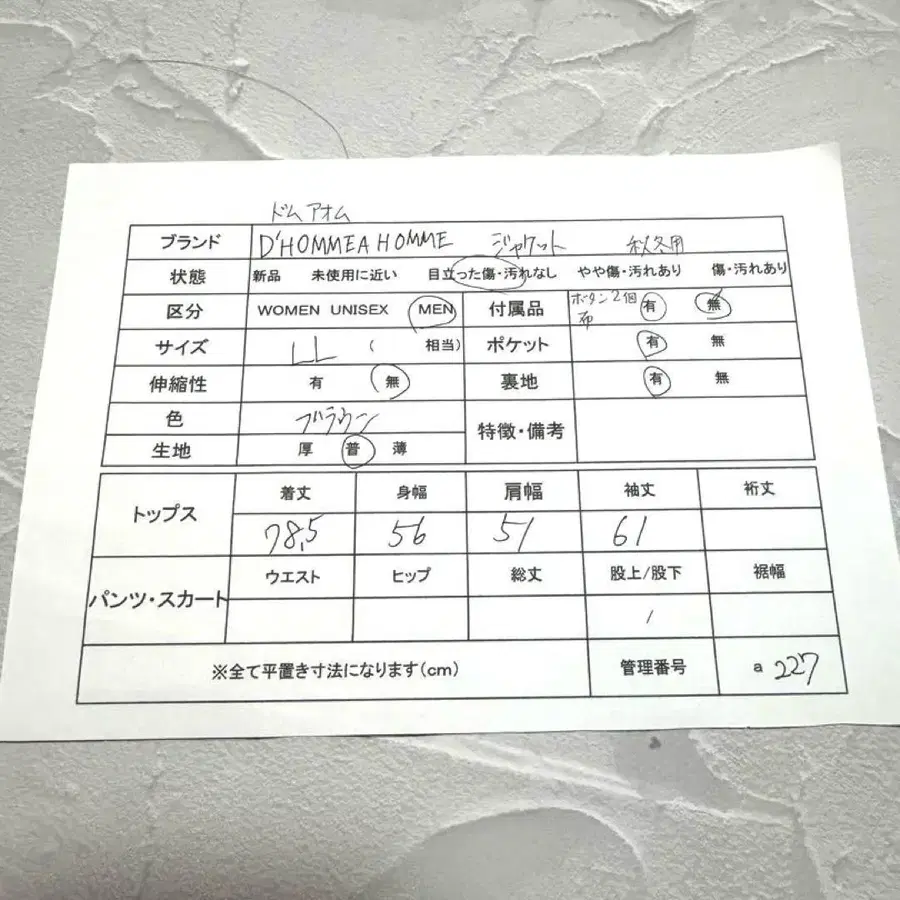 ドムアオム
ブランド D'HOMMEA HOMME ジャケット 秋冬用
状態 新品 未使用に近い 目立った傷・汚れなし やや傷・汚れあり 傷・汚れあり
区分 WOMEN UNISEX MEN 付属品 ボタン2個 布 有 無
サイズ LL ( 相当) ポケット 有 無
伸縮性 有 無 裏地 有 無
色 ブラウン 特徴・備考
生地 厚 普 薄
トップス 着丈 身幅 肩幅 袖丈 裄丈
78,5 56 51 61
パンツ・スカート ウエスト ヒップ 総丈 股上/股下 裾幅
/
※全て平置き寸法になります(cm) 管理番号 a 227